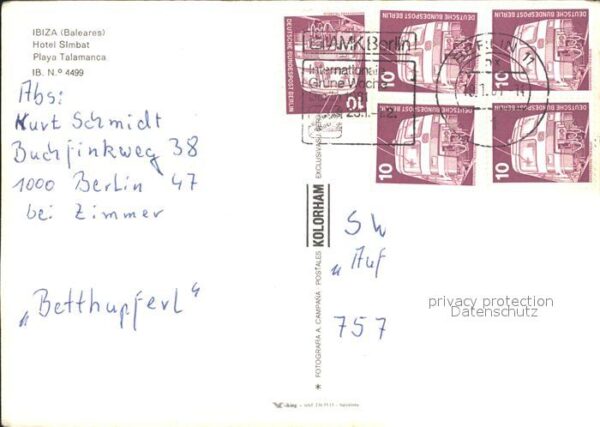 IBIZA (Baleares)
Hotel Simbat
Playa Talamanca
IB. N.º 4499
Abs:
Kurt Schmidt
Buchfinkweg 38
1000 Berlin 47
bei Zimmer
„Betthupferl“
FOTOGRAFIA A. CAMPAÑA · POSTALES KOLORHAM
DEUTSCHE BUNDESPOST BERLIN
10
DEUTSCHE BUNDESPOST BERLIN
10
DEUTSCHE BUNDESPOST BERLIN
10
DEUTSCHE BUNDESPOST BERLIN
10
DEUTSCHE BUNDESPOST BERLIN
10
AMK Berlin
Internationale
Grüne Woche
BERLIN 11
SW
„Auf
757
privacy protection
Datenschutz